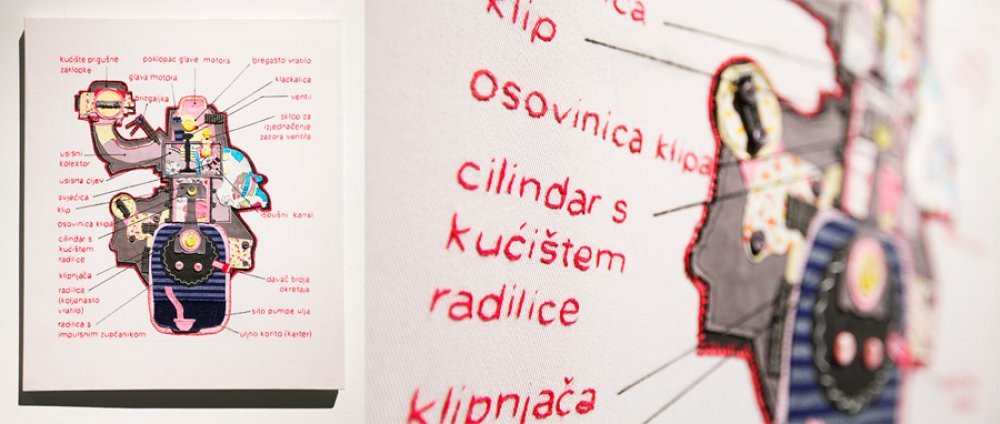 kućište prigušne
zaklopke
poklopac glave motora
bregasto vratilo
glava motora
klackalica
brizgaljka
ventil
sklop za
izjednačenje
zazora ventila
usisni
kolektor
usisna cijev
svjećica
klip
ispušni kanal
osovinica klipa
cilindar s
kućištem
radilice
klipnjača
radilica
(koljenasto
vratilo)
radilica s
impulsnim zupčanikom
davač broja
okretaja
sito pumpe ulja
uljno korito (karter)
klip
osovinica klipa
cilindar s
kućištem
radilice
klipnjača